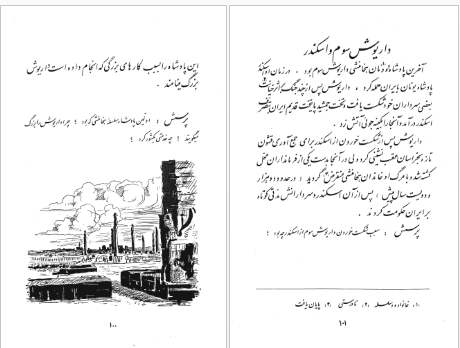 این پادشاه را بسبب کارهای بزرگی که انجام داده است داریوش
بزرگ مینامند .
پرسش : اولین پادشاه سلسله هخامنشی که بود ؟ چرا داریوش را بزرگ
میگویند ؟ چه خدمتی بکشور کرد ؟
۱۰۰
داریوش سوم و اسکندر
آخرین پادشاه دودمان هخامنشی داریوش سوم بود . در زمان او اسکندر
پادشاه یونان بایران حمله کرد . داریوش پس از چند جنگ بر اثر خیانت
بعضی سرداران خود شکست یافت و تخت جمشید پایتخت قدیم ایران بتصرف
اسکندر درآمد و آنجا را بکینه جوئی آتش زد .
داریوش پس از شکست خوردن از اسکندر برای جمع آوری قشون
تازه بخراسان عقب نشینی کرد ولی در آنجا بدست یکی از فرمانداران خود
کشته شد و با مرگ او خاندان هخامنشی منقرض گردید : در حدود دو هزار
و دویست سال پیش . پس از آن اسکندر و سردارانش مدتی کوتاه
بر ایران حکومت کردند .
پرسش : سبب شکست خوردن داریوش سوم از اسکندر چه بود ؟
۱. خانواده و سلسله ۲. نادرستی ۳. پایان یافت
۱۰۱